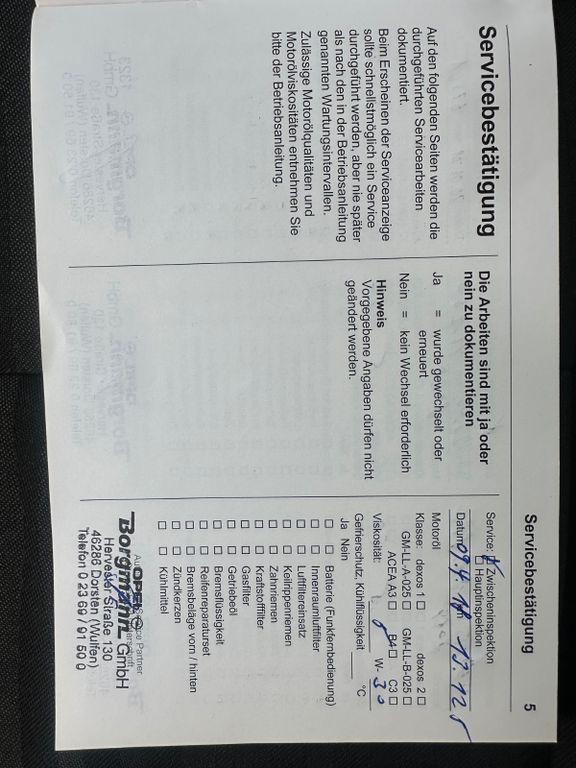 Servicebestätigung 5
Servicebestätigung
Auf den folgenden Seiten werden die
durchgeführten Servicearbeiten
dokumentiert.
Beim Erscheinen der Serviceanzeige
sollte schnellstmöglich ein Service
durchgeführt werden, aber nie später
als nach den in der Betriebsanleitung
genannten Wartungsintervallen.
Zulässige Motorölqualitäten und
Motorölviskositäten entnehmen Sie
bitte der Betriebsanleitung.
Die Arbeiten sind mit ja oder
nein zu dokumentieren
Ja = wurde gewechselt oder
erneuert
Nein = kein Wechsel erforderlich
Hinweis
Vorgegebene Angaben dürfen nicht
geändert werden.
Service: Zwischeninspektion
☐ Hauptinspektion
Datum
Motoröl
Klasse: dexos 1 ☐ dexos 2 ☐
GM-LL-A-025 ☐ GM-LL-B-025 ☐
ACEA A3 ☐ B4 ☐ C3 ☐
Viskosität: 0 W- 30
Gefrierschutz, Kühlflüssigkeit °C
Ja Nein
☐ ☐ Batterie (Funkfernbedienung)
☐ ☐ Innenraumluftfilter
☐ ☐ Luftfiltereinsatz
☐ ☐ Keilrippenriemen
☐ ☐ Zahnriemen
☐ ☐ Kraftstofffilter
☐ ☐ Gasfilter
☐ ☐ Getriebeöl
☐ ☐ Bremsflüssigkeit
☐ ☐ Reifenreparaturset
☐ ☐ Bremsbeläge vorn / hinten
☐ ☐ Zündkerzen
☐ ☐ Kühlmittel
OPEL Partner
Borgmann GmbH
Hervester Straße 130
46286 Dorsten (Wulfen)
Telefon 0 23 69 / 91 50 0